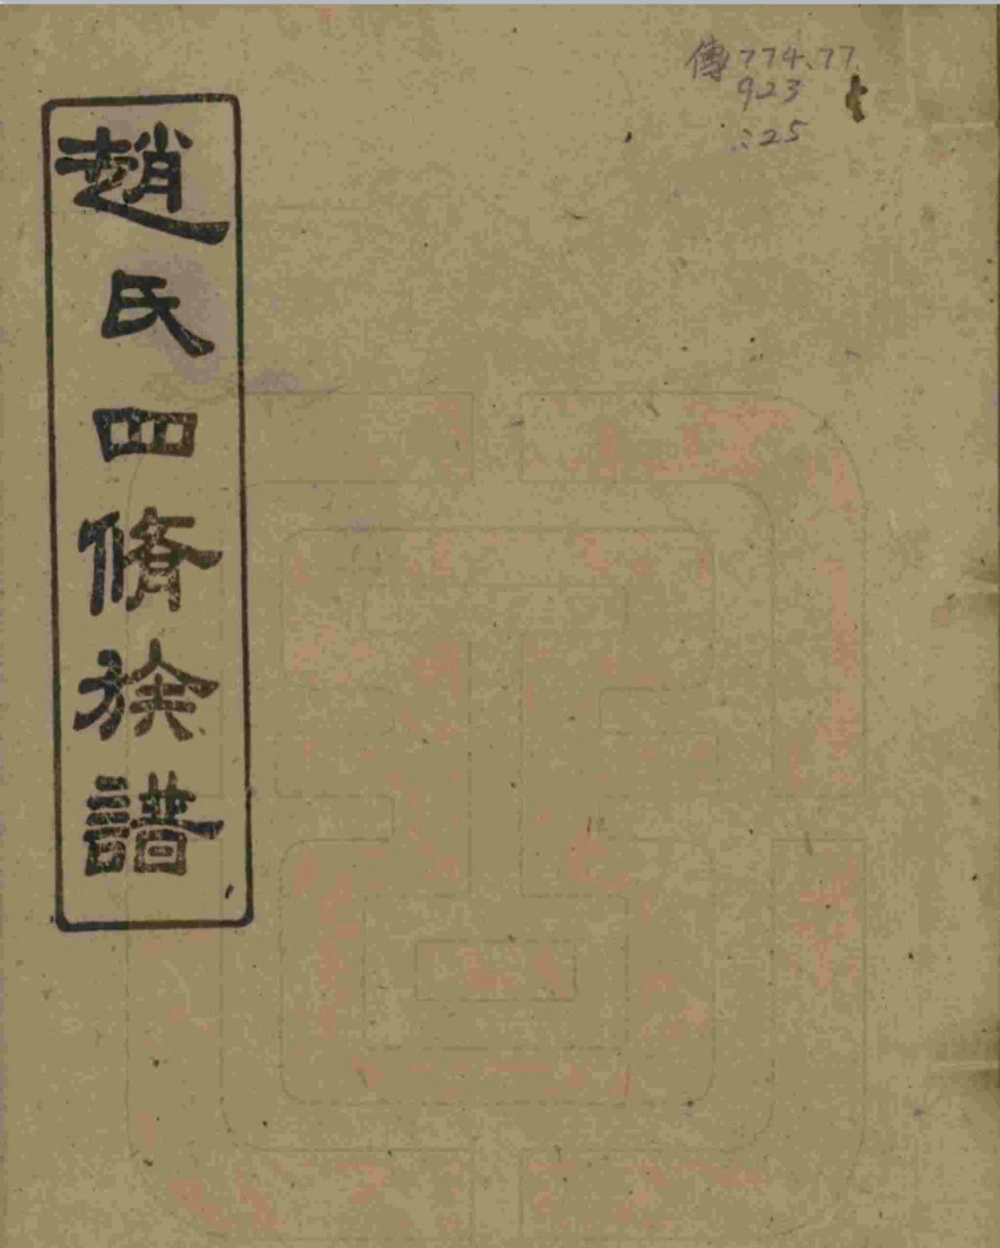 趙氏四脩族譜
傳774.77
923
:25